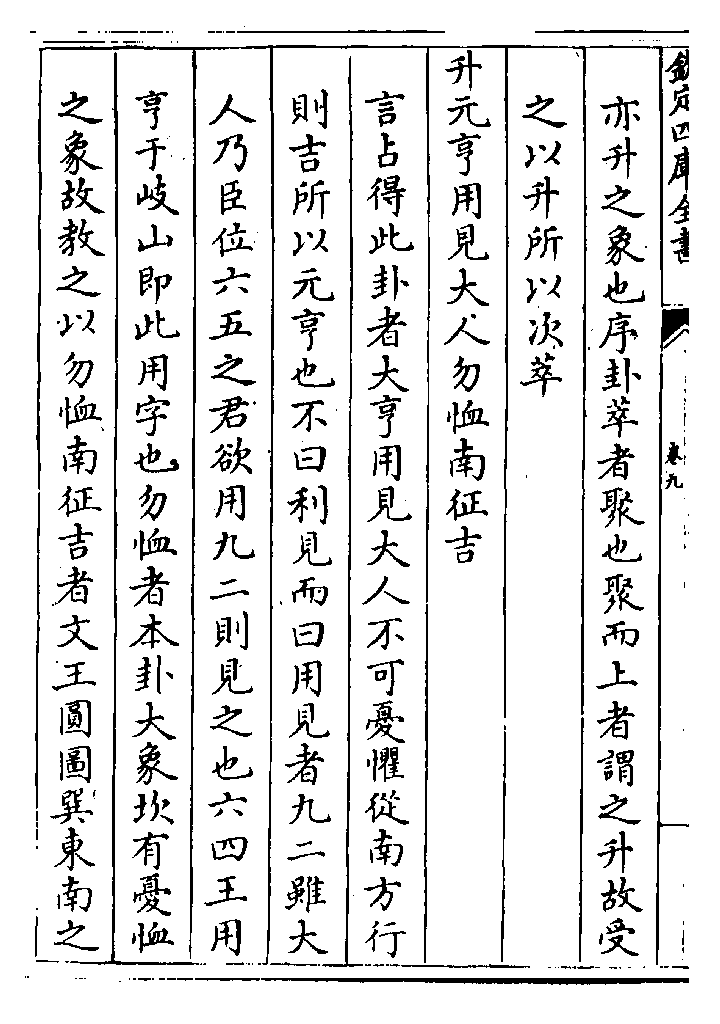 欽定四庫全書
卷九
亦升之象也序卦萃者聚也聚而上者謂之升故受
之以升所以次萃
升元亨用見大人勿恤南征吉
言占得此卦者大亨用見大人不可憂懼從南方行
則吉所以元亨也不曰利見而曰用見者九二雖大
人乃臣位六五之君欲用九二則見之也六四王用
亨于岐山即此用字也勿恤者本卦大象坎有憂恤
之象故教之以勿恤南征吉者文王圓圖巽東南之